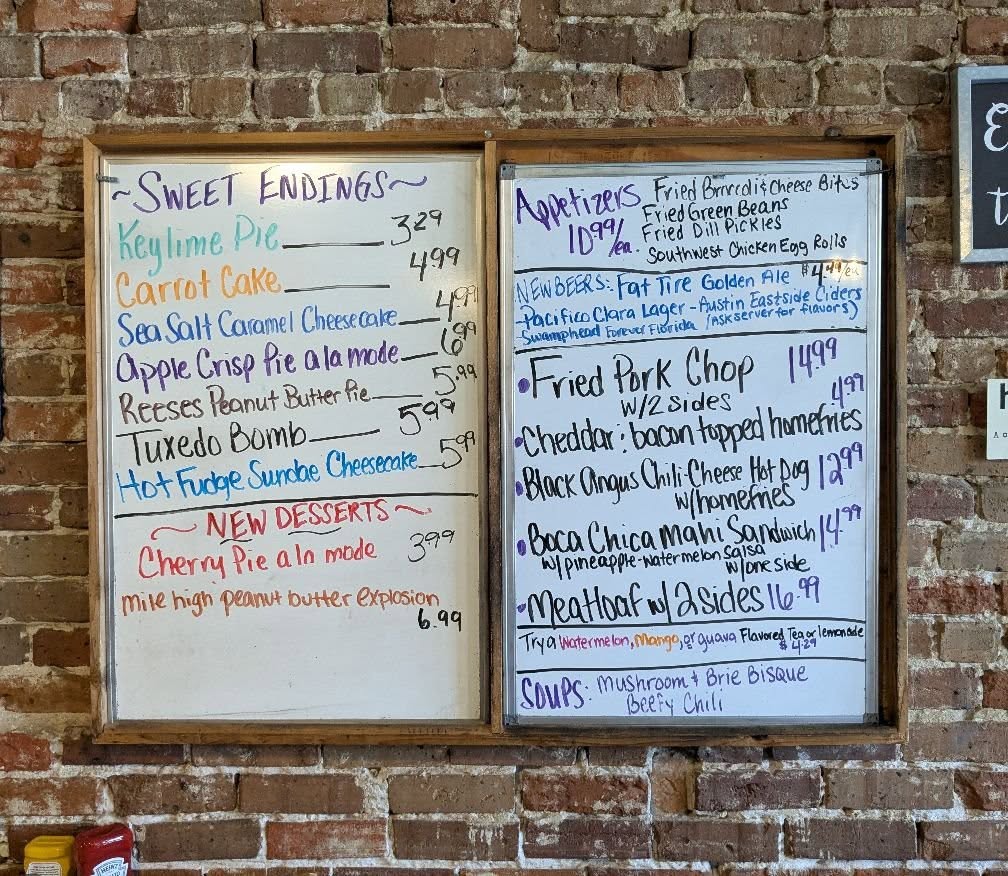 ~SWEET ENDINGS~
Keylime Pie 3.29
Carrot Cake 4.99
Sea Salt Caramel Cheesecake 4.99
Apple Crisp Pie a la mode 6.99
Reeses Peanut Butter Pie 5.99
Tuxedo Bomb 5.99
Hot Fudge Sundae Cheesecake 5.99
~NEW DESSERTS~
Cherry Pie a la mode 3.99
mile high peanut butter explosion
6.99
Appetizers Fried Broccoli & Cheese Bites
10.99/ea. Fried Green Beans
Fried Dill Pickles
Southwest Chicken Egg Rolls
NEW BEERS: Fat Tire Golden Ale $4.49/ea
-Pacifico Clara Lager - Austin Eastside Ciders
-Swamphead Forever Florida (Ask server for flavors)
•Fried Pork Chop 14.99
w/2 sides
•Cheddar & bacon topped homefries 4.99
•Black Angus Chili-Cheese Hot Dog 12.99
w/homefries
•Boca Chica Mahi Sandwich 14.99
w/pineapple-watermelon salsa
w/one side
•Meatloaf w/2 sides 16.99
Try a Watermelon, Mango, or guava Flavored Tea or lemonade
$4.29
SOUPS: Mushroom & Brie Bisque
Beefy Chili
HEINZ